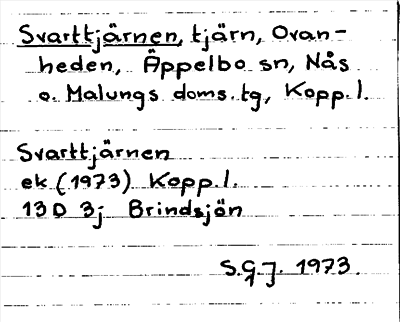 Svarttjärnen, tjärn, Ovan-
heden, Äppelbo sn, Nås
o. Malungs doms. tg, Kopp. l.
Svarttjärnen
ek (1973) Kopp. l.
13D 3j Brindsjön
S.G.J. 1973.